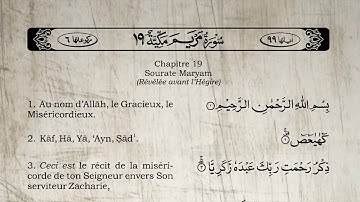 اٰیاتہا ٩٩ سُوْرَةُ مَرْيَمَ مَكِّيَّةٌ ١٩ رکوعاتہا ٦
Chapitre 19
Sourate Maryam
(Révélée avant l'Hégire)
1. Au nom d'Allāh, le Gracieux, le
Miséricordieux.
بِسْمِ اللّٰهِ الرَّحْمٰنِ الرَّحِيْمِ ۝١
2. Kāf, Hā, Yā, ‘Ayn, Ṣād¹.
كٓهٰيٰعٓصٓ ۝٢
3. Ceci est le récit de la miséri-
corde de ton Seigneur envers Son
serviteur Zacharie,
ذِكْرُ رَحْمَتِ رَبِّكَ عَبْدَهٗ زَكَرِيَّا ۝٣